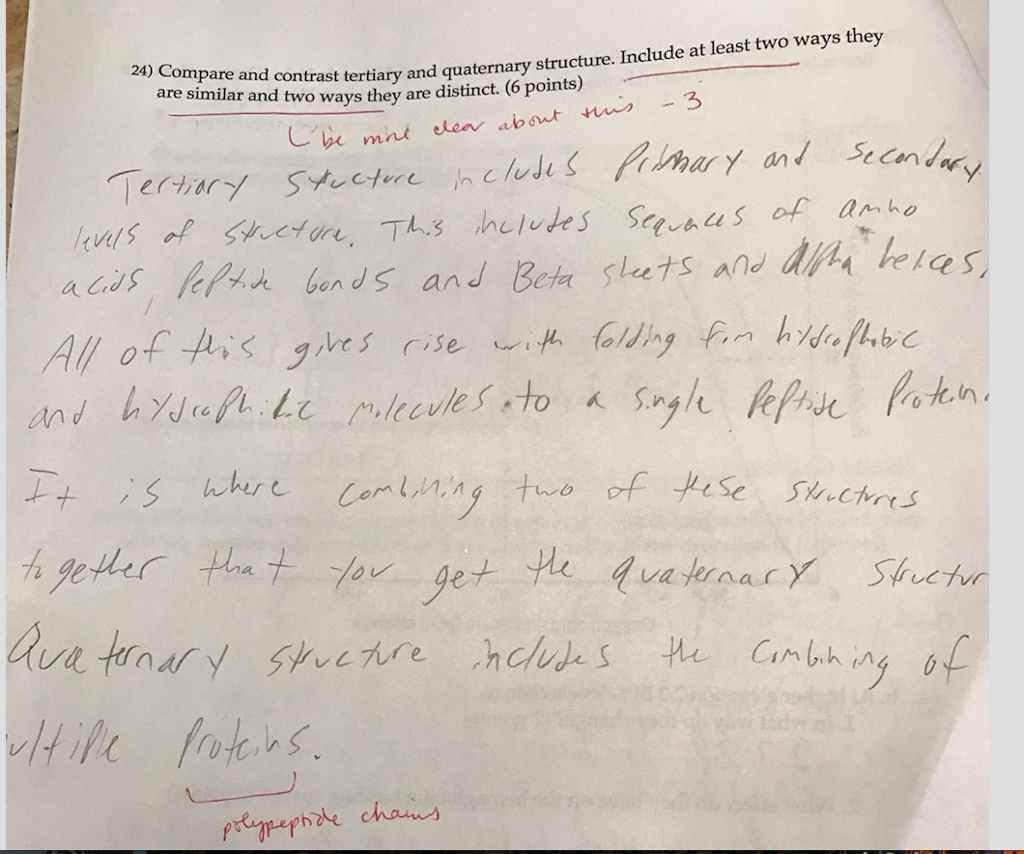 24) Compare and contrast tertiary and quaternary structure. Include at least two ways they
are similar and two ways they are distinct. (6 points)
be more clear about this - 3
Tertiary Structure includes Primary and Secondary
levels of structure. This includes Sequnces of amino
acids, Peptide bonds and Beta sheets and Alpha helices.
All of this gives rise with folding from hydrophobic
and hydrophilic molecules to a single Peptide Protein.
It is where combining two of these structures
together that you get the quaternary Structur
Quaternary structure includes the Combining of
ultiple Proteins.
polypeptide chains